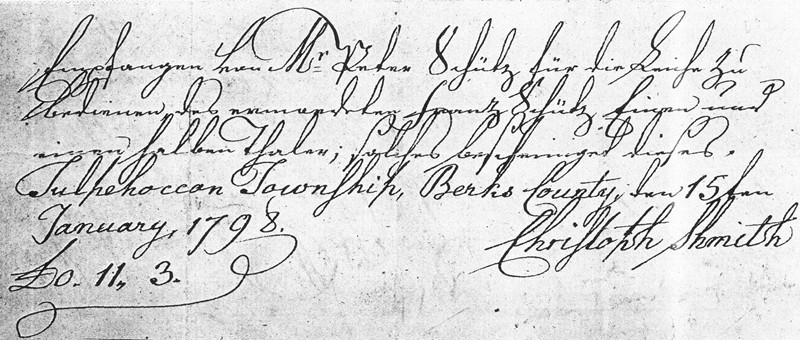 Empfangen von Mr. Peter Schütz für die Leiche zu
bedienen des ermordeten Franz Schütz Einen und
einen halben Thaler; solches bescheiniget dieses.
Tulpehoccon Township, Berks County, den 15ten
January, 1798.
Christoph Shmith
£0. 11,, 3.